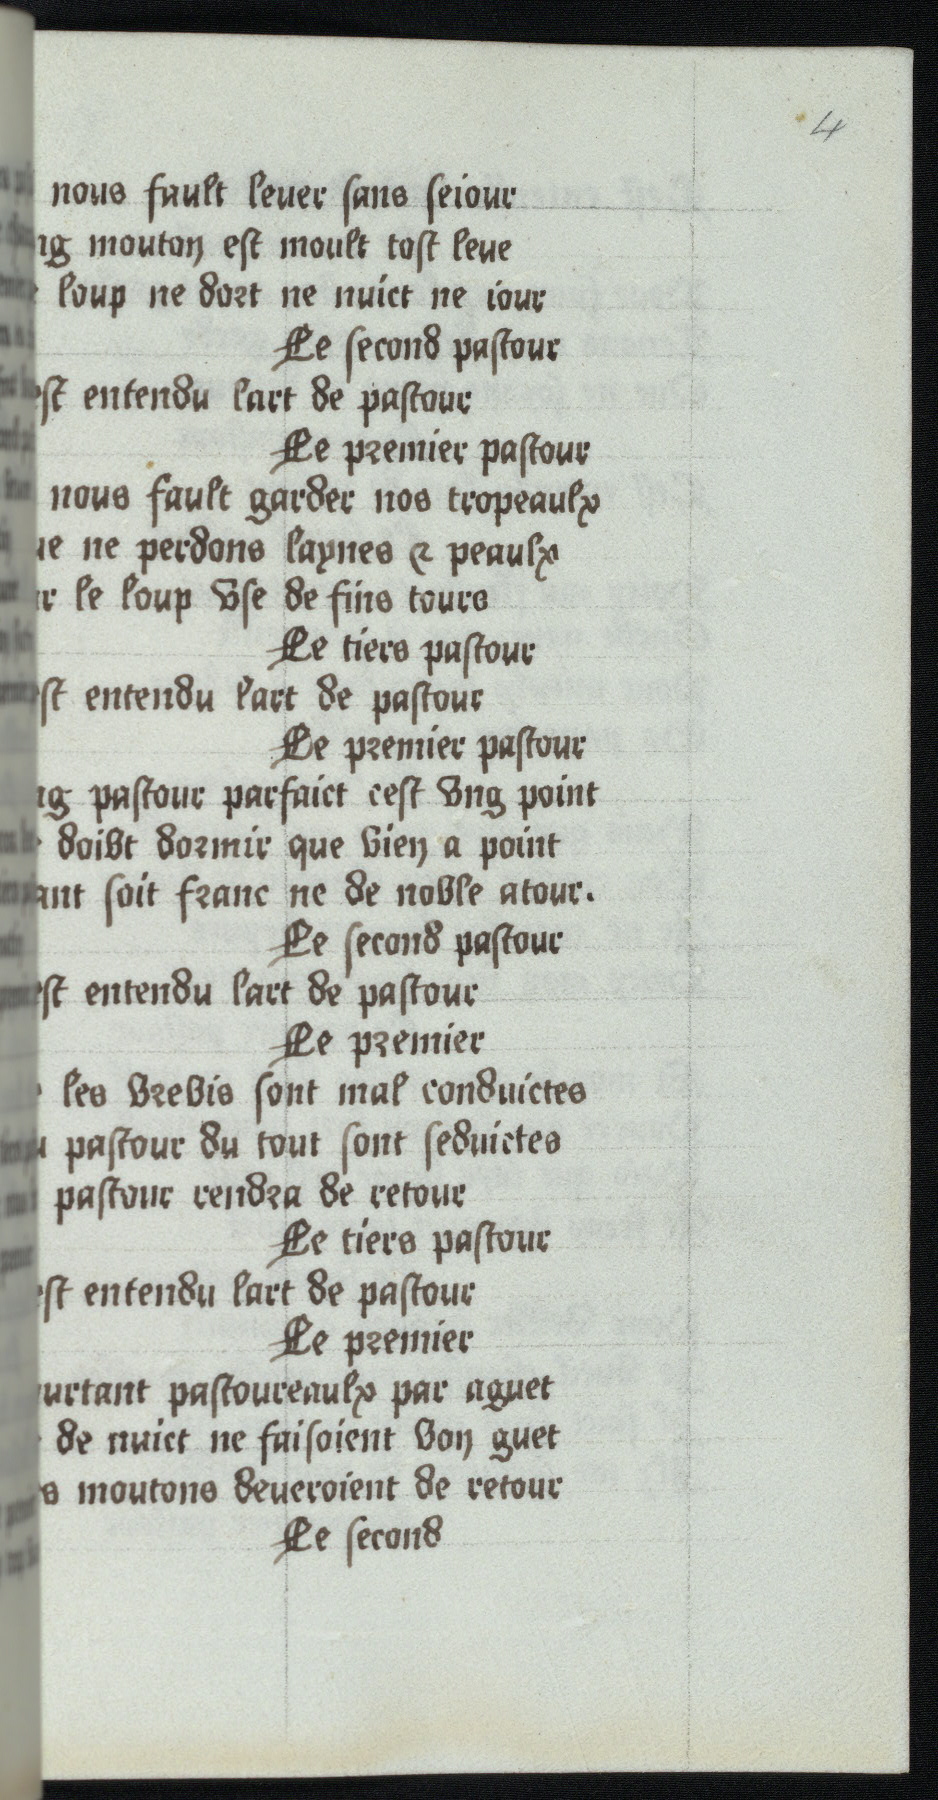 4
nous fault leuer sans seiour
ng mouton est moult tost leue
loup ne dort ne nuict ne iour
Le second pastour
est entendu lart de pastour
Le premier pastour
nous fault garder nos tropeaulx
ue ne perdons laynes & peaulx
r le loup vse de fins tours
Le tiers pastour
st entendu lart de pastour
Le premier pastour
ng pastour parfaict cest vng point
doibt dormir que bien a point
ant soit franc ne de noble atour.
Le second pastour
est entendu lart de pastour
Le premier
les brebis sont mal conduictes
u pastour du tout sont seduictes
pastour rendra de retour
Le tiers pastour
est entendu lart de pastour
Le premier
urtant pastoureaulx par aguet
de nuict ne faisoient bon guet
s moutons deueroient de retour
Le second